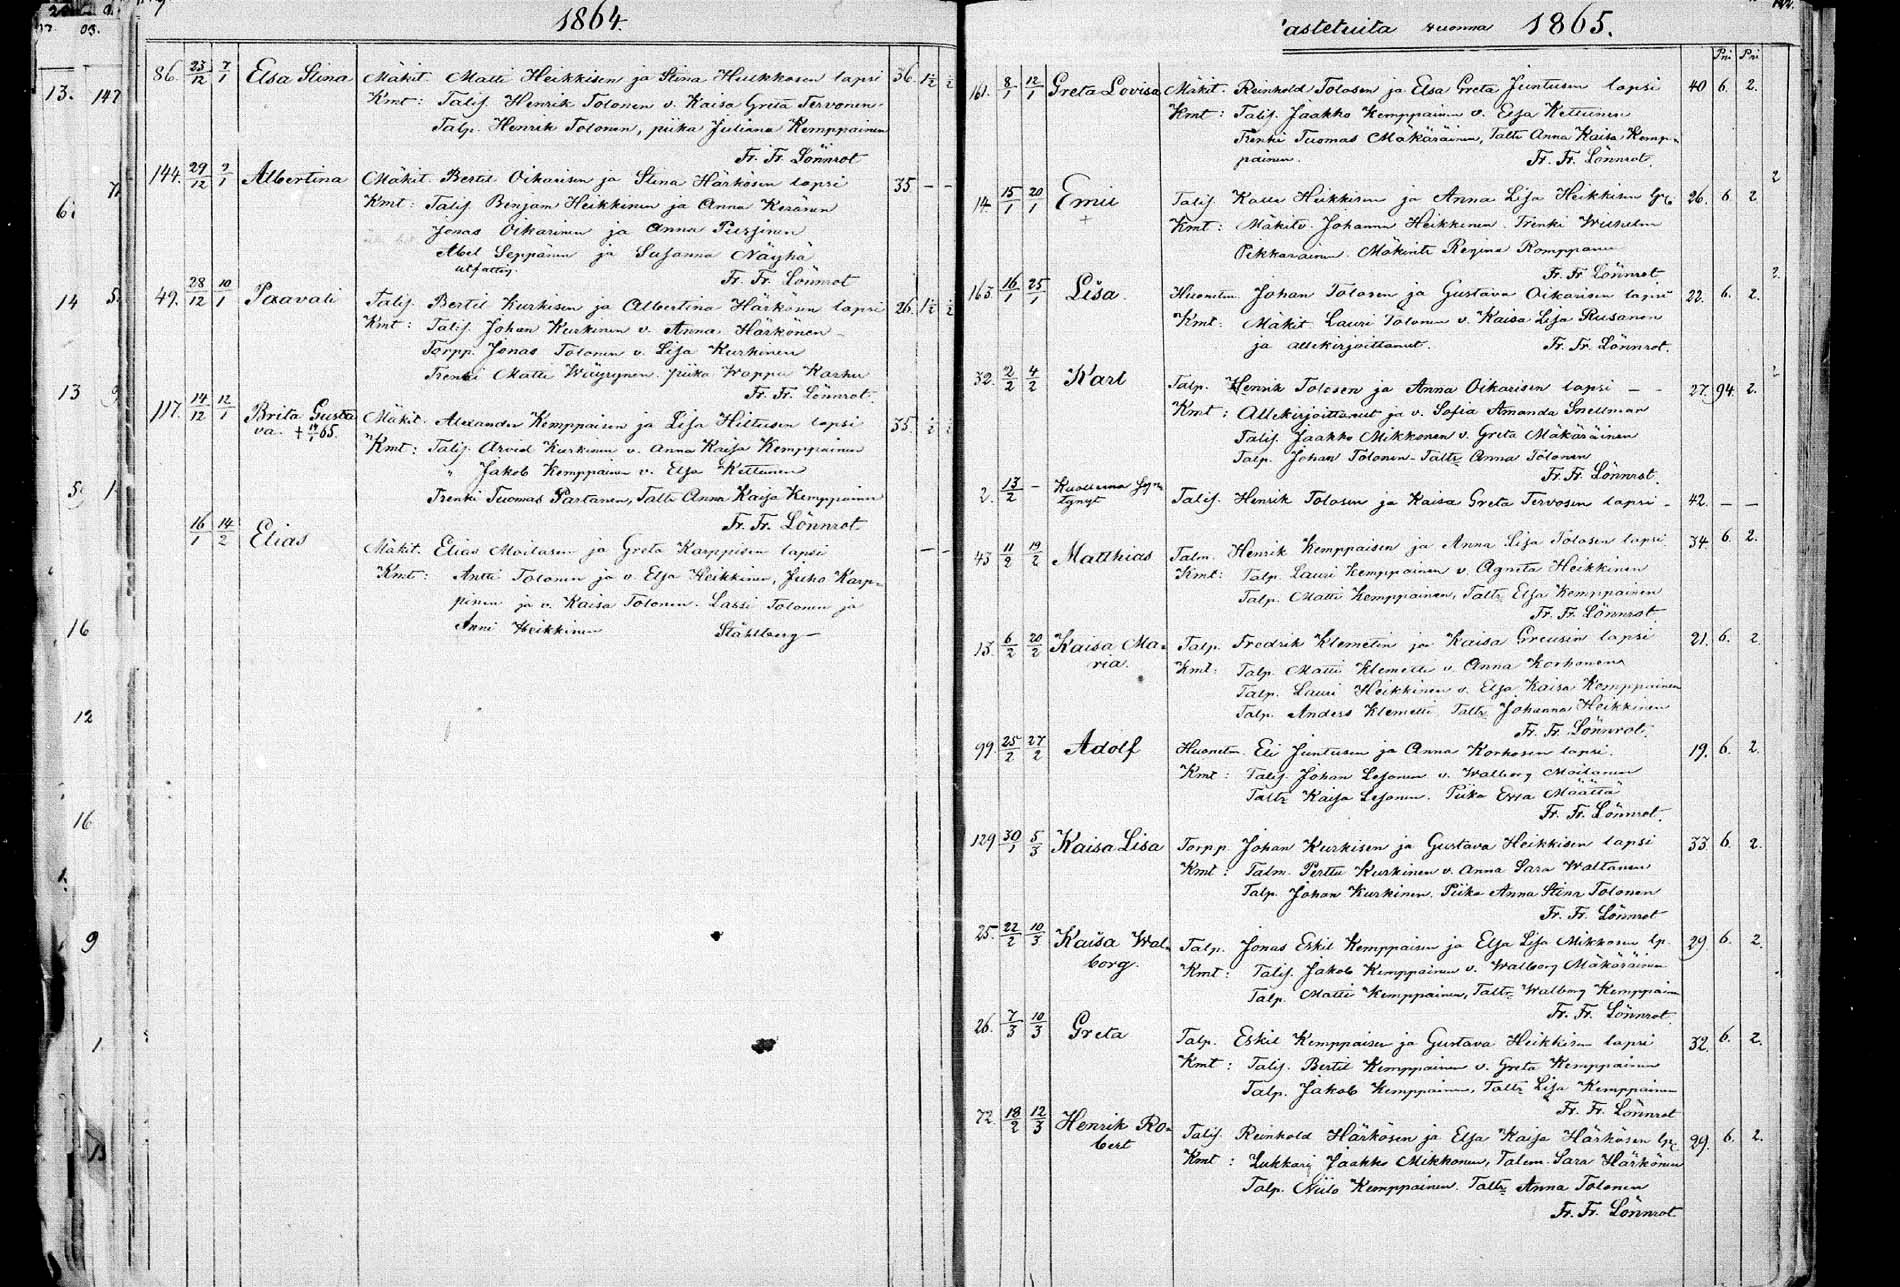 1864.
86. 23/12 7/1 Elsa Stina Mäkit. Matti Heikkisen ja Stina Hulkkosen lapsi 36. 1½
Kmt: Talij. Henrik Tolonen v. Kaisa Greta Tervonen
Talp. Henrik Tolonen, piika Juliana Kemppainen
Fr. Fr. Lönnrot
144. 29/12 2/1 Albertina Mäkit. Bertil Oikarisen ja Stina Härkösen lapsi 35 – –
Kmt: Talij. Benjam Heikkinen ja Anna Keränen
Jonas Oikarinen ja Anna
Abel Seppänen ja Susanna Näyhä
utfattig. Fr. Fr. Lönnrot
49. 28/12 10/1 Paavali Talij. Bertil Kurkisen ja Albertina Härkösen lapsi 26. 1½
Kmt: Talij. Johan Kurkinen v. Anna Härkönen
Torpp. Jonas Tolonen v. Lisa Kurkinen
Trenki Matti Wäyrynen. piika Wappu Karhu
Fr. Fr. Lönnrot.
117. 14/12 12/1 Brita Gusta Mäkit. Alexander Kemppaisen ja Lisa Hiltusen lapsi 35. ½
va. + 14/1 65. Kmt: Talij. Arvid Kurkinen v. Anna Kaisa Kemppainen
" Jakob Kemppainen v. Elsa Kettunen
Trenki Tuomas Partanen, Taltr Anna Kaisa Kemppainen
Fr. Fr. Lönnrot
16/1 14/2 Elias Mäkit. Elias Moilasen ja Greta Karppisen lapsi – –
Kmt: Antti Tolonen ja v. Elsa Heikkinen, Juho Karp-
pinen ja v. Kaisa Tolonen. Lassi Tolonen ja
Anni Heikkinen Ståhlberg –
13. 147
6.
14 5.
13
5.
16
12
16
9
1.
astetuita vuonna 1865.
161. 8/1 12/1 Greta Lovisa Mäkit. Reinhold Tolosen ja Elsa Greta Juntusen lapsi 40 6. 2.
Kmt: Talij. Jaakko Kemppainen v. Elsa Kettunen
Trenki Tuomas Mäkäräinen, Taltr Anna Kaisa Kemp-
painen. Fr. Fr. Lönnrot.
14. 15/1 20/1 Emil + Talij. Kalle Heikkisen ja Anna Lisa Heikkisen 26. 6 2
Kmt: Mäkitr. Johannes Heikkinen. Trenki Wilhelm
Pikkarainen. Mäkintr Regina Romppanen
Fr. Fr. Lönnrot
163. 16/1 25/1 Lisa. Huonetm. Johan Tolosen ja Gustava Oikarisen lapsi 22. 6. 2.
Kmt: Mäkit. Lauri Tolonen v. Kaisa Lisa Rusanen
ja allekirjoittanut. Fr. Fr. Lönnrot.
32. 2/2 4/2 Karl Talp. Henrik Tolosen ja Anna Oikarisen lapsi – – 27. 94. 2.
Kmt: Allekirjoittanut ja v. Sofia Amanda Snellman
Talij. Jaakko Mikkonen v. Greta Mäkäräinen
Talp. Johan Tolonen. Taltr Anna Tolonen
Fr. Fr. Lönnrot.
2. 13/2 – Kuollena syn-
tynyt Talij. Henrik Tolosen ja Kaisa Greta Tervosen lapsi – 42. – –
43 11/2 19/2 Matthias Talm. Henrik Kemppaisen ja Anna Lisa Tolosen lapsi 34. 6. 2.
Kmt: Talp. Lauri Kemppainen v. Agneta Heikkinen
Talp. Matti Kemppainen, Taltr Elsa Kemppainen
Fr. Fr. Lönnrot
13. 6/2 20/2 Kaisa Ma- Talp. Fredrik Klemetin ja Kaisa Greusin lapsi 21. 6. 2
ria. Kmt: Talp. Matti Klemetti v. Anna Korhonen
Talp. Lauri Heikkinen v. Elsa Kaisa Kemppainen
Talp. Anders Klemetti Taltr Johanna Heikkinen
Fr. Fr. Lönnrot.
99. 25/2 27/2 Adolf Huonetm. Eli Juntusen ja Anna Korhosen lapsi. 19. 6. 2.
Kmt: Talij. Johan Lesonen v. Walborg Moilanen
Taltr Kaisa Lesonen. Piika Eeva Määttä
Fr. Fr. Lönnrot.
129 30/1 5/3 Kaisa Lisa Torpp. Johan Kurkisen ja Gustava Heikkisen lapsi 33. 6. 2.
Kmt: Talm. Perttu Kurkinen v. Anna Sara Waltanen
Talp. Johan Kurkinen. Piika Anna Stina Tolonen
Fr. Fr. Lönnrot
25. 22/2 10/3 Kaisa Wal- Talp. Jonas Eskil Kemppaisen ja Elsa Lisa Mikkosen lp. 29. 6. 2.
borg. Kmt: Talij. Jakob Kemppainen v. Walborg Mäkäräinen
Talp. Matti Kemppainen, Taltr Walborg Kemppainen
Fr. Fr. Lönnrot.
26. 7/3 10/3 Greta Talp. Eskil Kemppaisen ja Gustava Heikkisen lapsi 32. 6. 2.
Kmt: Talij. Bertil Kemppainen v. Greta Kemppainen
Talp. Jakob Kemppainen, Taltr Lisa Kemppainen
Fr. Fr. Lönnrot
72. 18/2 12/3 Henrik Ro- Talij. Reinhold Härkösen ja Elsa Kaisa Härkösen 29. 6. 2.
bert Kmt: Lukkari Jaakko Mikkonen, Talem. Sara Härkönen
Talp. Niilo Kemppainen. Taltr Anna Tolonen
Fr. Fr. Lönnrot